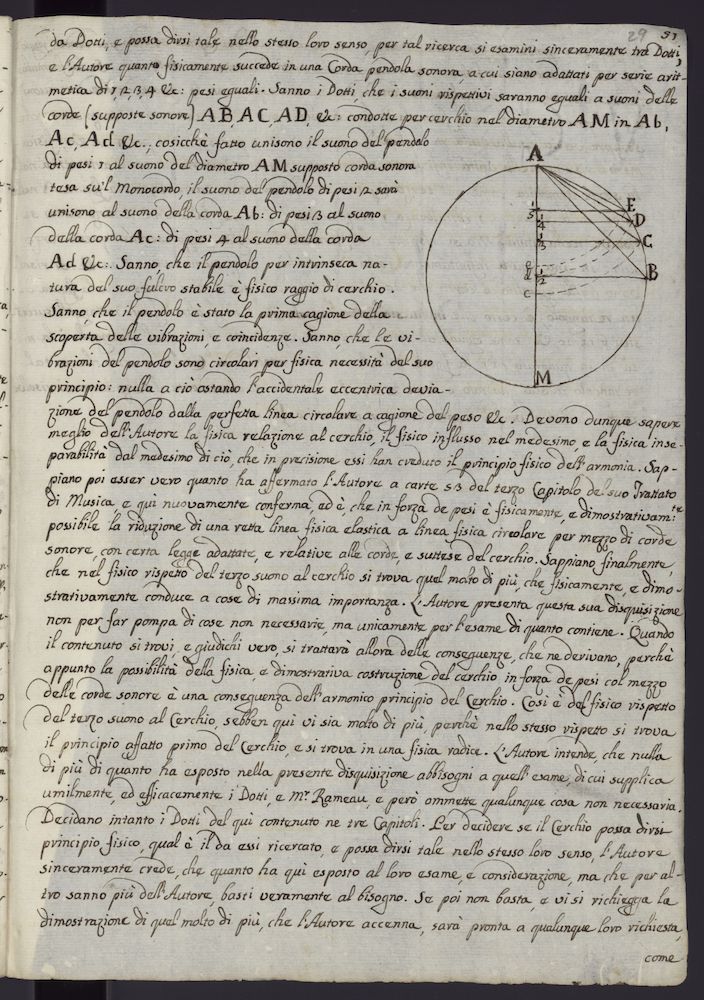 29 51
da Dotti, e possa dirsi tale nello stesso loro senso, per tal ricerca si esamini sinceramente tra Dotti,
e l'Autore quanto fisicamente succede in una Corda pendola sonora, a cui siano adattati per serie arit-
metica di 1, 2, 3, 4 &c: pesi eguali. Sanno i Dotti, che i suoni rispettivi saranno eguali a suoni delle
corde (supposte sonore) AB, AC, AD, &c: condotte per cerchio nel diametro AM in Ab,
Ac, Ad &c., cosicchè fatto unisono il suono del pendolo
di pesi 1 al suono del diametro AM supposto corda sonora
tesa su'l Monocordo, il suono del pendolo di pesi 2 sarà
unisono al suono della corda Ab: di pesi 3 al suono
della corda Ac: di pesi 4 al suono della corda
Ad &c:. Sanno, che il pendolo per intrinseca na-
tura del suo fulcro stabile è fisico raggio di cerchio.
Sanno, che il pendolo è stato la prima cagione della
scoperta delle vibrazioni e coincidenze. Sanno che le vi-
brazioni del pendolo sono circolari per fisica necessità del suo
principio: nulla a ciò ostando l'accidentale eccentrica devia-
zione del pendolo dalla perfetta linea circolare a cagione del peso &c. Devono dunque sapere
meglio dell'Autore la fisica relazione al cerchio, il fisico influsso nel medesimo, e la fisica inse-
parabilità dal medesimo di ciò, che in precisione essi han creduto il principio fisico dell'armonia. Sap-
piano poi esser vero quanto ha affermato l'Autore a carte 53 del terzo Capitolo del suo Trattato
di Musica, e qui nuovamente conferma, ed è, che in forza de pesi è fisicamente, e dimostrativam:te
possibile la riduzione di una retta linea fisica elastica a linea fisica circolare per mezzo di corde
sonore, con certa legge adattate, e relative alle corde, e suttese del cerchio. Sappiano finalmente,
che nel fisico rispetto del terzo suono al cerchio si trova quel molto di più, che fisicamente, e dimo-
strativamente conduce a cose di massima importanza. L'Autore presenta questa sua disquisizione
non per far pompa di cose non necessarie, ma unicamente per l'esame di quanto contiene. Quando
il contenuto si trovi, e giudichi vero, si trattarà allora delle conseguenze, che ne derivano, perchè
appunto la possibilità della fisica, e dimostrativa costruzione del cerchio in forza de pesi col mezzo
delle corde sonore è una conseguenza dell'armonico principio del Cerchio. Così è del fisico rispetto
del terzo suono al Cerchio, sebben qui vi sia molto di più, perchè nello stesso rispetto si trova
il principio affatto primo del Cerchio, e si trova in una fisica radice. L'Autore intende, che nulla
di più di quanto ha esposto nella presente disquisizione abbisogni a quell'esame, di cui supplica
umilmente, ed efficacemente i Dotti, e Mr. Rameau, e però ommette qualunque cosa non necessaria.
Decidano intanto i Dotti del qui contenuto ne tre Capitoli. Per decidere se il Cerchio possa dirsi
principio fisico, qual è il da essi ricercato, e possa dirsi tale nello stesso loro senso, l'Autore
sinceramente crede, che quanto ha qui esposto al loro esame, e considerazione, ma che per al-
tro sanno più dell'Autore, basti veramente al bisogno. Se poi non basta, e vi si richiegga la
dimostrazione di quel molto di più, che l'Autore accenna, sarà pronta a qualunque loro richiesta,
come
A
E
D
C
B
1/5
1/4
1/3
1/2
e
d
c
M